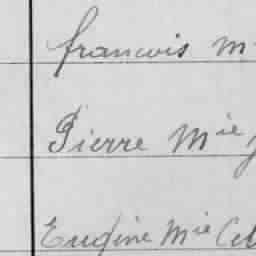 francois M
Pierre Mie
Eugène Mie Cel